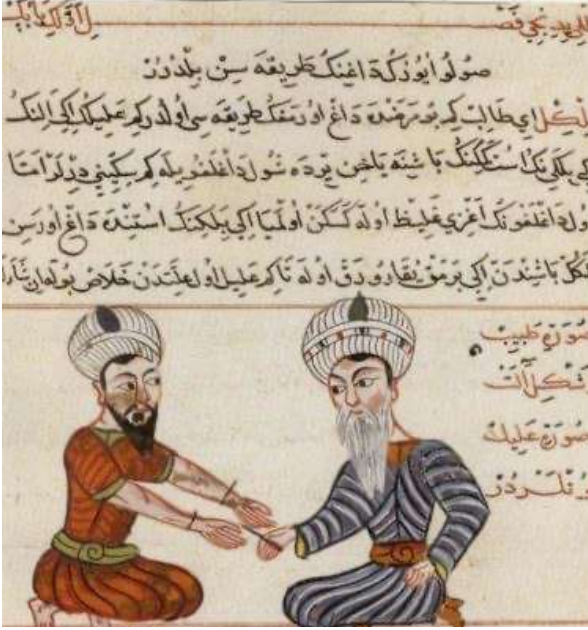 صولو ابوزك داغينك طريقه سن بلدرر
بلكل اي طالب كم بو مرضده داغ اورمقك طريقه سي اولدر كم عليلك اكي النك
باشنه ياخن يرده شول داغلغويله كم سكيني ديرلر اما
اول داغلغونك اغزي غليظ اوله كسكن اولميا اكي بلكنك استنده داغ اورسن
باشندن اكي برمق يقارودق اوله تا كم عليل اول علتدن خلاص بوله ان
صورة طبيب
شكل آلت
صورة عليل
بونلردر